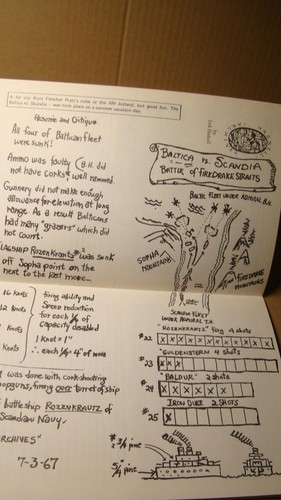 A far cry from Fletcher Pratt's rules or the ARI Ironclad, but good fun. The
Baltica vs. Scandia - war took place on a summer vacation day.
Resume and Critique
All four of Baltican fleet
were sunk!
Ammo was faulty (B.H. did
not have corks* well rammed.
Gunnery did not make enough
allowance for elevation at long
range. As a result Balticans
had many "grazers" which did
not count.
FLAGSHIP Rozenkrantz was sunk
off Sopha point on the
next to the last move...
16 Knots
12 Knots
Knots
Knots
firing ability and
Speed reduction
for each 1/4 of
capacity disabled
1 Knot = 1"
∴ each 1/4 = 4" of move
was done with cork-shooting
popguns, firing over turret of ship
battleship ROZENKRANTZ of
Scandian Navy.
ARCHIVES"
7-3-67
by
BALTICA vs. SCANDIA
BATTLE OF FIREDRAKE STRAITS
BALTIC FLEET UNDER ADMIRAL B.H.
SOPHA
MOUNTAINS
FIREDRAKE
MOUNTAINS
SCANDIA FLEET
UNDER ADMIRAL T.H.
"ROZENKRANTZ" flag 9 shots
#22
X X X X X X X X X X
"GOLDENSTERN" 4 shots
#23
X X
"BALDUR" 2 shots
#24
X X X X X X
IRON DUKE 2 SHOTS
#25
X X
#2 3/4 pine
5/4 pine